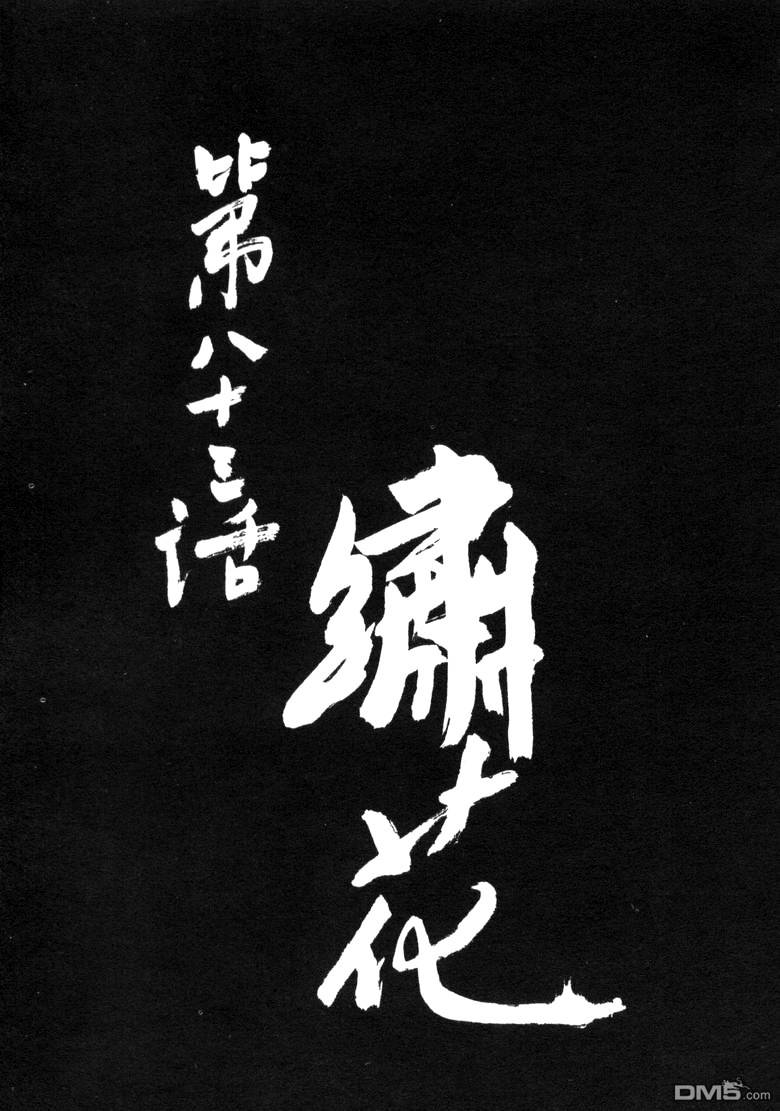 第八十三话
繡花
DM5.com